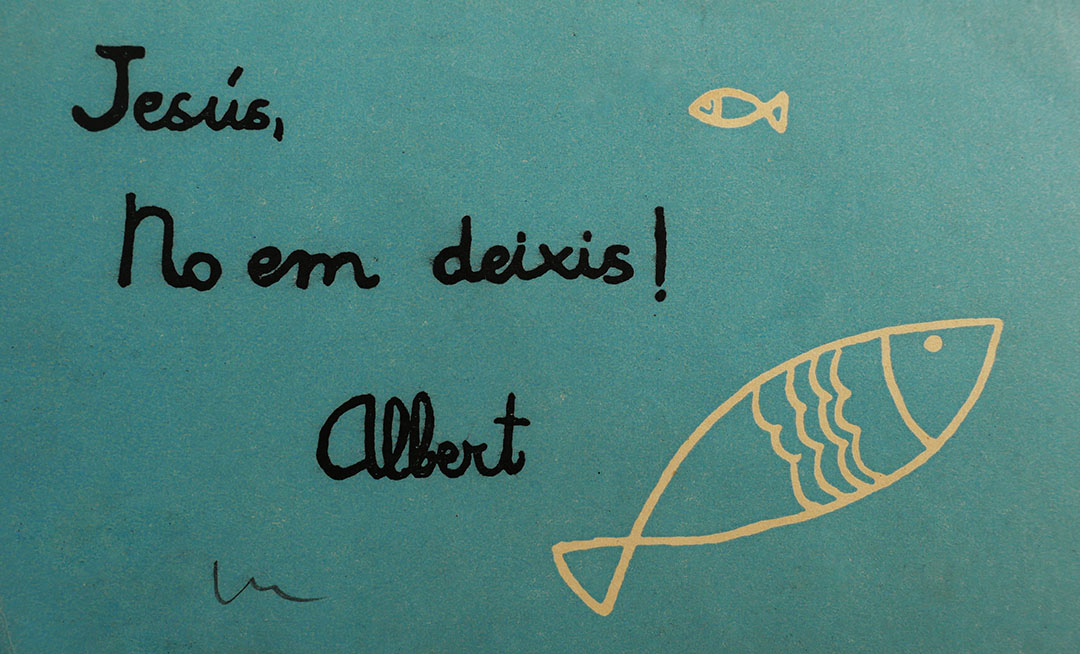 Jesús,
No em deixis!
Albert